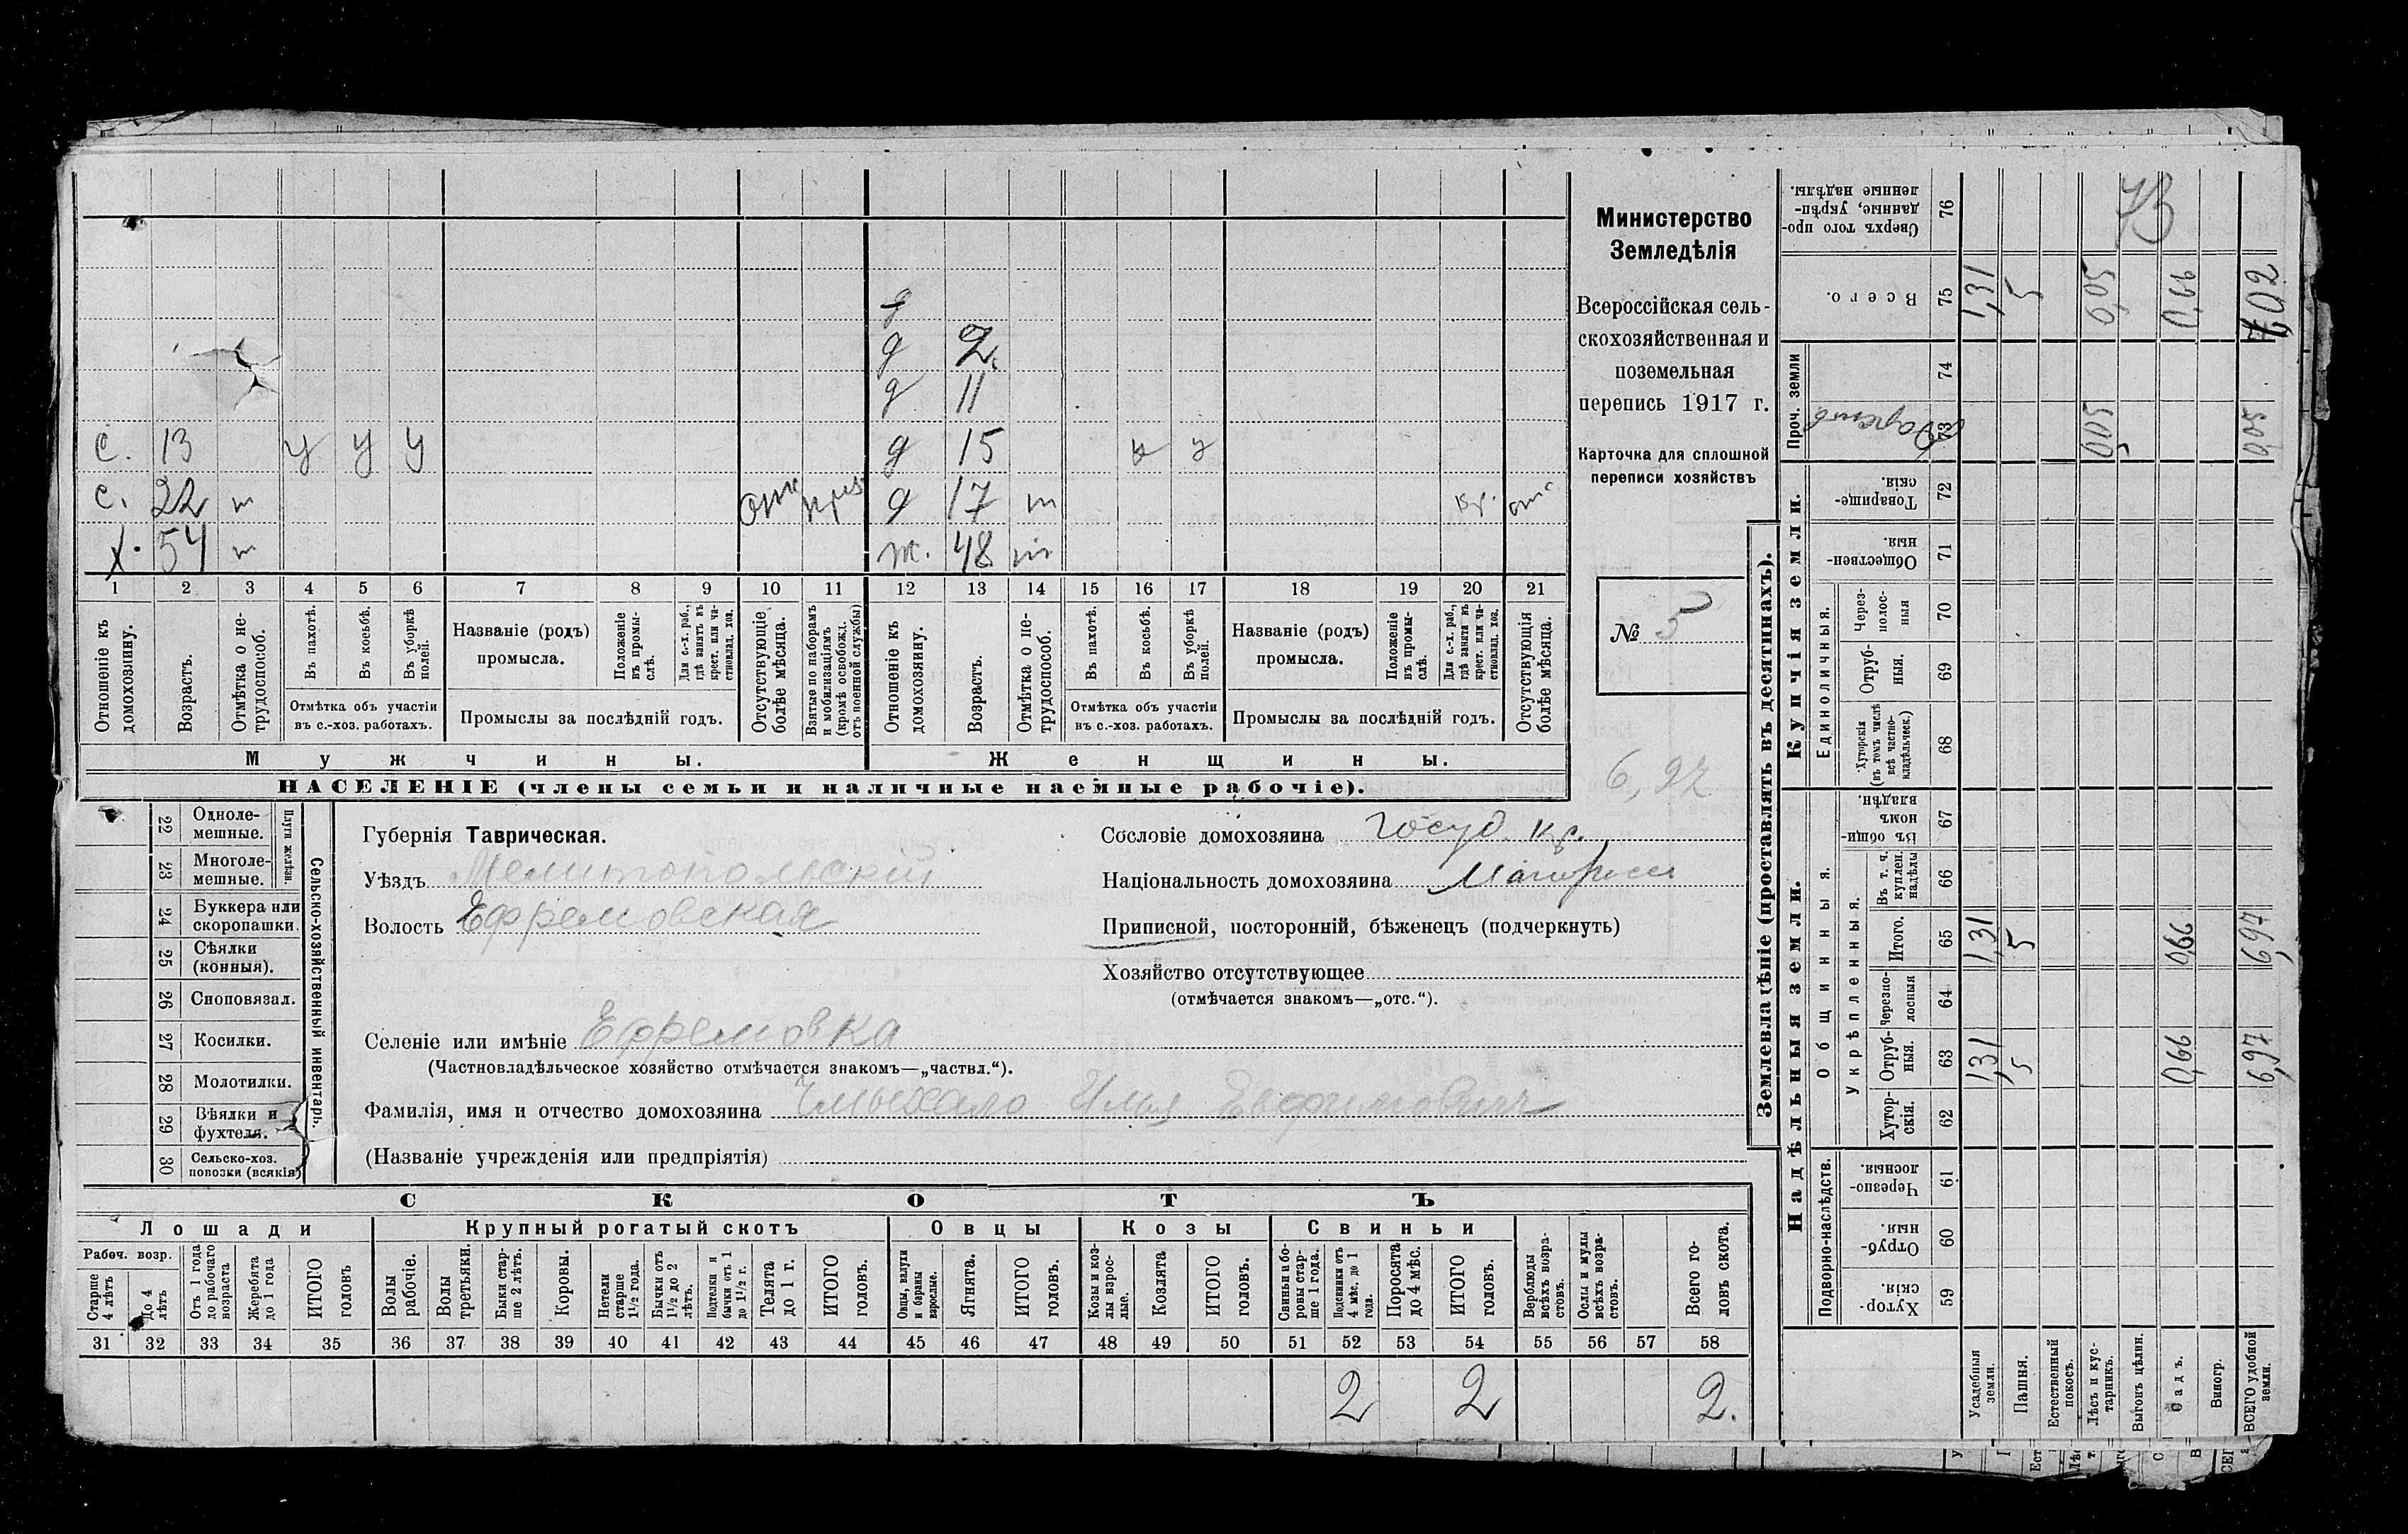 с. 13 у у у
с. 22 т отс
х. 54 т
д
д 2
д 11
д 15 у у
д 17 т кр. отс
ж. 48 т
1 2 3 4 5 6 7 8 9 10 11 12 13 14 15 16 17 18 19 20 21
Отношеніе къ домохозяину.
Возрастъ.
Отмѣтка о нетрудоспособ.
Въ пахотѣ.
Въ косьбѣ.
Въ уборкѣ полей.
Отмѣтка объ участіи въ с.-хоз. работахъ.
Названіе (родъ) промысла.
Положеніе въ промыслѣ.
Для с.-х. раб., гдѣ занятъ въ крест. или частновлад. хоз.
Промыслы за послѣдній годъ.
Отсутствующіе болѣе мѣсяца.
Взятые по наборамъ и мобилизаціямъ (кромѣ освобожд. отъ военной службы)
Отношеніе къ домохозяину.
Возрастъ.
Отмѣтка о нетрудоспособ.
Въ пахотѣ.
Въ косьбѣ.
Въ уборкѣ полей.
Отмѣтка объ участіи въ с.-хоз. работахъ.
Названіе (родъ) промысла.
Положеніе въ промыслѣ.
Для с.-х. раб., гдѣ занята въ крест. или частновлад. хоз.
Промыслы за послѣдній годъ.
Отсутствующія болѣе мѣсяца.
Мужчины.
Женщины.
НАСЕЛЕНІЕ (члены семьи и наличные наемные рабочіе).
Министерство
Земледѣлія
Всероссійская сель-
скохозяйственная и
поземельная
перепись 1917 г.
Карточка для сплошной
переписи хозяйствъ
№ 5
6,97
22 Одноле-
мешные.
23 Многоле-
мешные.
Плуги желѣзн.
24 Буккера или
скоропашки.
25 Сѣялки
(конныя).
26 Сноповязал.
27 Косилки.
28 Молотилки.
29 Вѣялки и
фухтеля.
30 Сельско-хоз.
повозки (всякія)
Сельско-хозяйственный инвентарь.
Губернія Таврическая.
Уѣздъ Мелитопольскій
Волость Ефремовская
Селеніе или имѣніе Ефремовка
(Частновладѣльческое хозяйство отмѣчается знакомъ—„частвл.“).
Фамилія, имя и отчество домохозяина Чмыхало Илья Евфимович
(Названіе учрежденія или предпріятія)
Сословіе домохозяина Госуд. кр.
Національность домохозяина Малорусс
Приписной, посторонній, бѣженецъ (подчеркнуть)
Хозяйство отсутствующее
(отмѣчается знакомъ—„отс.“).
СКОТЪ
Лошади
Крупный рогатый скотъ
Овцы
Козы
Свиньи
Рабоч. возр.
Старше 4 лѣтъ
До 4 лѣтъ
Отъ 1 года до рабочаго возраста
Жеребята до 1 года
ИТОГО головъ
Волы рабочіе.
Волы третьяки.
Быки старше 2 лѣтъ.
Коровы.
Нетели старше 1 1/2 года.
Бычки отъ 1 1/2 до 2 лѣтъ.
Подтелки и бычки отъ 1 до 1 1/2 г.
Телята до 1 г.
ИТОГО головъ.
Овцы, валухи и бараны взрослые.
Ягнята.
ИТОГО головъ.
Козы и козлы взрослые.
Козлята
ИТОГО головъ.
Свиньи и боровы старше 1 года.
Подсвинки отъ 4 мѣс. до 1 года.
Поросята до 4 мѣс.
ИТОГО головъ.
Верблюды всѣхъ возрастовъ.
Ослы и мулы всѣхъ возрастовъ.
Всего головъ скота.
31 32 33 34 35 36 37 38 39 40 41 42 43 44 45 46 47 48 49 50 51 52 53 54 55 56 57 58
2 2 2.
Землевладѣніе (проставлять въ десятинахъ).
Надѣльныя земли.
Купчія земли.
Проч. земли
Подворно-наслѣдств.
Общинныя.
Укрѣпленныя.
Единоличныя.
Хуторскія. 59
Отрубныя. 60
Черезполосныя. 61
Хуторскія. 62
Отрубныя. 63 1,31 5 0,66 6,97
Черезполосныя 64
Итого. 65 1,31 5 0,66 6,97
Въ т. ч. куплен. надѣлы 66
Въ общинномъ владѣн. 67
Хуторскія (въ томъ числѣ всѣ частновладѣльческ.) 68
Отрубныя. 69
Черезполосныя 70
Общественныя. 71
Товарищескія. 72
73 0,05 0,05
74
Всего. 75 1,31 5 0,05 0,66 7,02
Сверхъ того проданные, укрѣпленные надѣлы. 76
73
Усадебныя земли.
Пашня.
Естественный покосъ.
Лѣсъ и кустарникъ.
Выгонъ цѣлин.
Садъ.
Виногр.
ВСЕГО удобной земли.